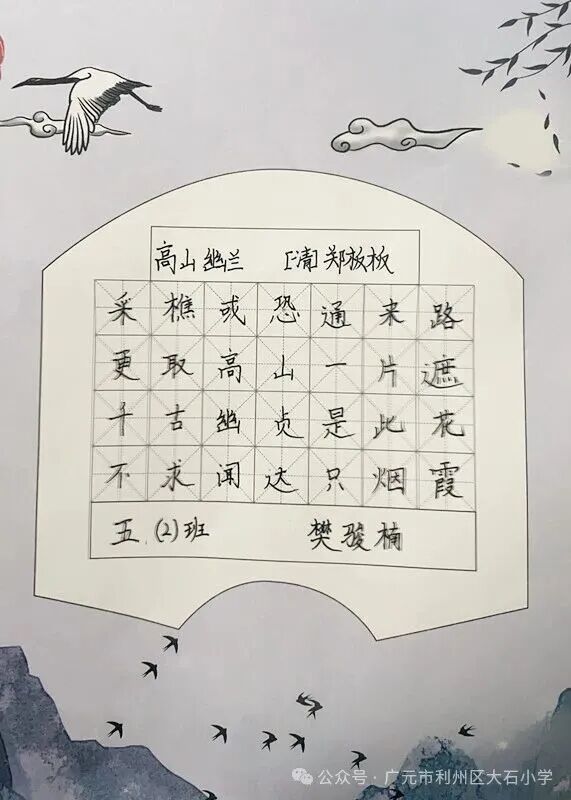 高山幽兰 [清]郑板板
采樵或恐通来路
更取高山一片遮
千古幽贞是此花
不求闻达只烟霞
五.(2)班 樊骏楠
公众号·广元市利州区大石小学